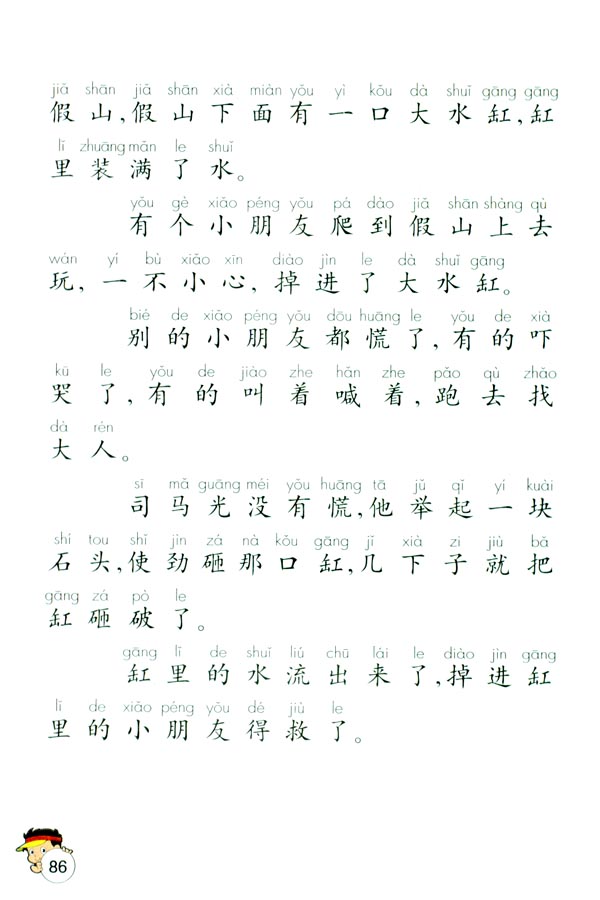 jiǎ shān jiǎ shān xià miàn yǒu yì kǒu dà shuǐ gāng gāng
假山,假山下面有一口大水缸,缸
lǐ zhuāng mǎn le shuǐ
里装满了水。
yǒu gè xiǎo péng yǒu pá dào jiǎ shān shàng qù
有个小朋友爬到假山上去
wán yí bù xiǎo xīn diào jìn le dà shuǐ gāng
玩,一不小心,掉进了大水缸。
bié de xiǎo péng yǒu dōu huāng le yǒu de xià
别的小朋友都慌了,有的吓
kū le yǒu de jiào zhe hǎn zhe pǎo qù zhǎo
哭了,有的叫着喊着,跑去找
dà rén
大人。
sī mǎ guāng méi yǒu huāng tā jǔ qǐ yí kuài
司马光没有慌,他举起一块
shí tou shǐ jìn zá nà kǒu gāng jǐ xià zi jiù bǎ
石头,使劲砸那口缸,几下子就把
gāng zá pò le
缸砸破了。
gāng lǐ de shuǐ liú chū lái le diào jìn gāng
缸里的水流出来了,掉进缸
lǐ de xiǎo péng yǒu dé jiù le
里的小朋友得救了。
86